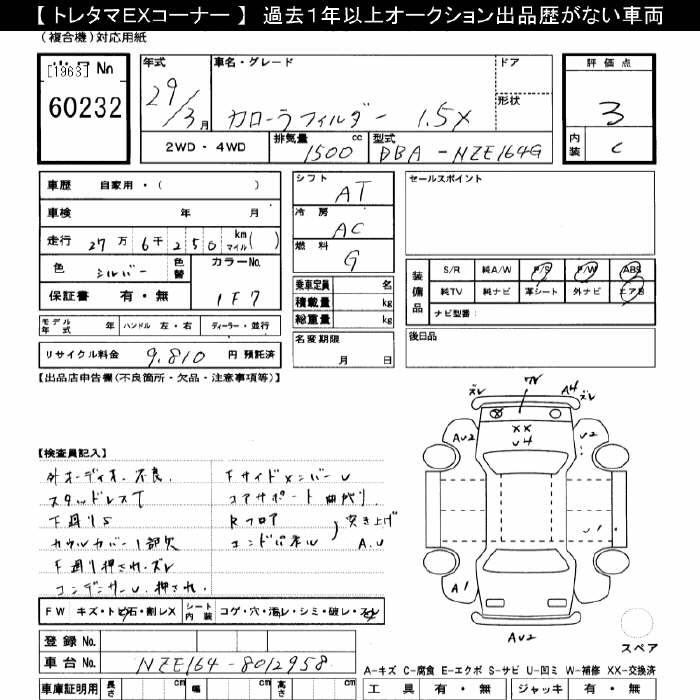 【 トレタマEXコーナー 】 過去１年以上オークション出品歴がない車両
(複合機)対応用紙
[1963] No
60232
年式 29/3月
車名・グレード
カローラフィルダー 1.5X
ドア
形状
評価点
3
内装 C
2WD・4WD
排気量 1500 cc
型式 DBA-NZE164G
車歴 自家用・( )
車検 年 月
走行 27万6千250 km マイル( )
色 シルバー 色替
カラーNo. 1F7
保証書 有・無
モデル年式 年 ハンドル 左・右 ディーラー・並行
リサイクル料金 9,810 円 預託済
シフト AT
冷房 AC
燃料 G
乗車定員 名
積載量 kg
総重量 kg
名変期限
月 日
セールスポイント
装備品
S/R 純A/W P/S P/W ABS
純TV 純ナビ 革シート 外ナビ エアB
ナビ型番:
後日品
【出品店申告欄(不良箇所・欠品・注意事項等)】
【検査員記入】
外オーディオ不良
スタッドレスT
下廻りS
カウルカバー1部欠
F廻り押され.ズレ
コンデンサーU.押され.
FサイドメンバーU
コアサポート曲代り
Rフロア
エンドパネル
突き上げ
A.U
ズレ W A4 ズレ
XX
U4
AU2 U2
U1
A1
AU2
スペア
FW キズ・トビ石・割レX シート内装 コゲ・穴・濡レ・シミ・破レ・スレ
登録No.
車台No. NZE164-8012958
A-キズ C-腐食 E-エクボ S-サビ U-凹ミ W-補修 XX-交換済
車庫証明用 長さ cm 幅 cm 高さ cm
工具 有・無 ジャッキ 有・無